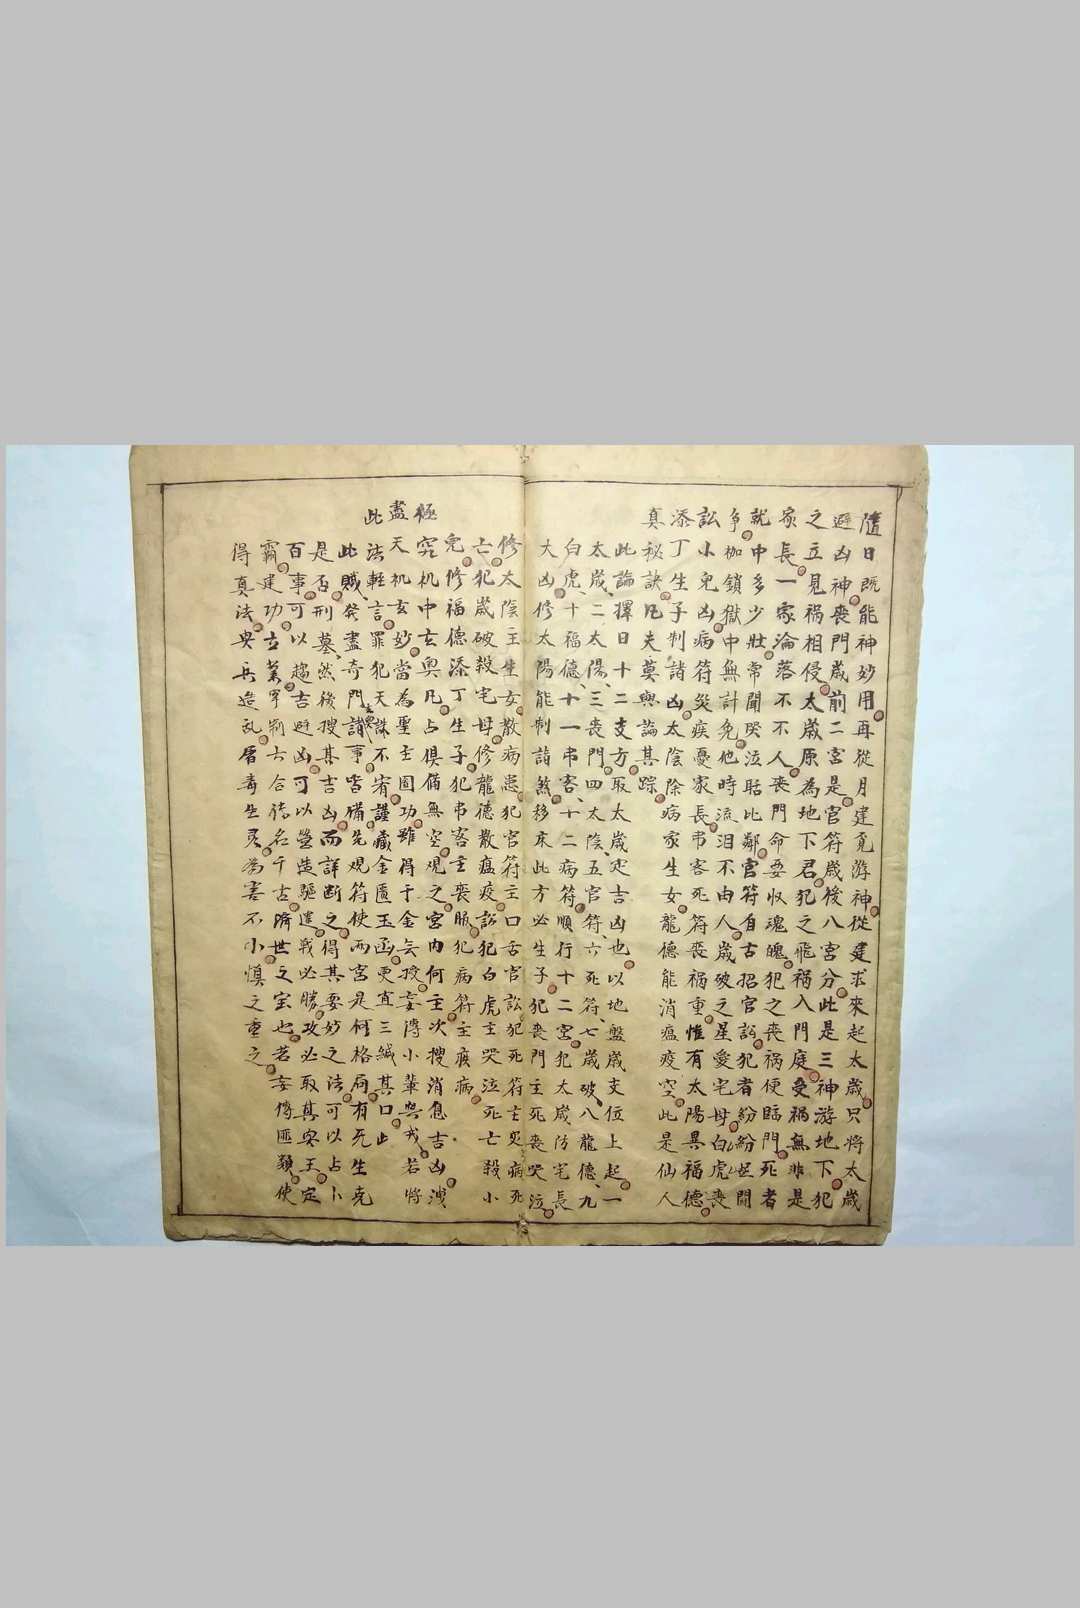 隨日既能神妙用再從月建覓游神從建求來起太歲只將太歲
避凶神喪門歲前二宮是官符歲後八宮分此是三神游地下犯
之立見禍相侵太歲原為地下君犯之飛禍入門庭受禍無非是
家長一家淪落不不人喪門命要收魂魄犯之喪禍便臨門死者
就中多少壯常聞哭泣聒此鄰官符自古招官訟犯者紛紛起鬪
爭枷鎖獄中無計免他時流泪不由人歲破之星愛宅母白虎喪
訟小兒凶病符災疾憂家長弔客死符喪禍重惟有太陽異福德
添丁生子制諸凶太陰除病家生女龍德能消瘟疫空此是仙人
真秘訣凡夫莫與論其踪
此論擇日十二支方取太歲定吉凶也以地盤歲支位上起一
太歲二太陽三喪門四太陰五官符六死符七歲破八龍德九
白虎十福德十一弔客十二病符順行十二宮犯太歲防宅長
大凶修太陽能制諸煞移床此方必生子犯喪門主死喪哭泣
修太陰主生女散病患犯官符主口舌官訟犯死符主災病死
亡犯歲破殺宅母修龍德散瘟疫訟犯白虎主哭泣死亡殺小
兒修福德添丁生子犯弔客主喪服犯病符主疾病
極究机中玄奧凡占俱備無空觀之宮內何主次搜消息吉凶洩
盡天机玄妙當為聖主圖功雖得千金妄授妄傳小輩與戎若將
此法輕言罪犯天誅不宥謹藏金匱玉函更宜三緘其口此
此賊發盡奇門諸事皆備先觀符使兩宮是何格局有无生克
是否刑墓然後搜其吉凶而詳斷之得其要妙之法可以占卜
百事可以趨吉避凶可以營造驅遣戰必勝攻必取真安王定
霸建功立業罕制六合德名千古濟世之宝也若妄傳匪類使
得真法與兵造乱屠毒生灵為害不小慎之重之